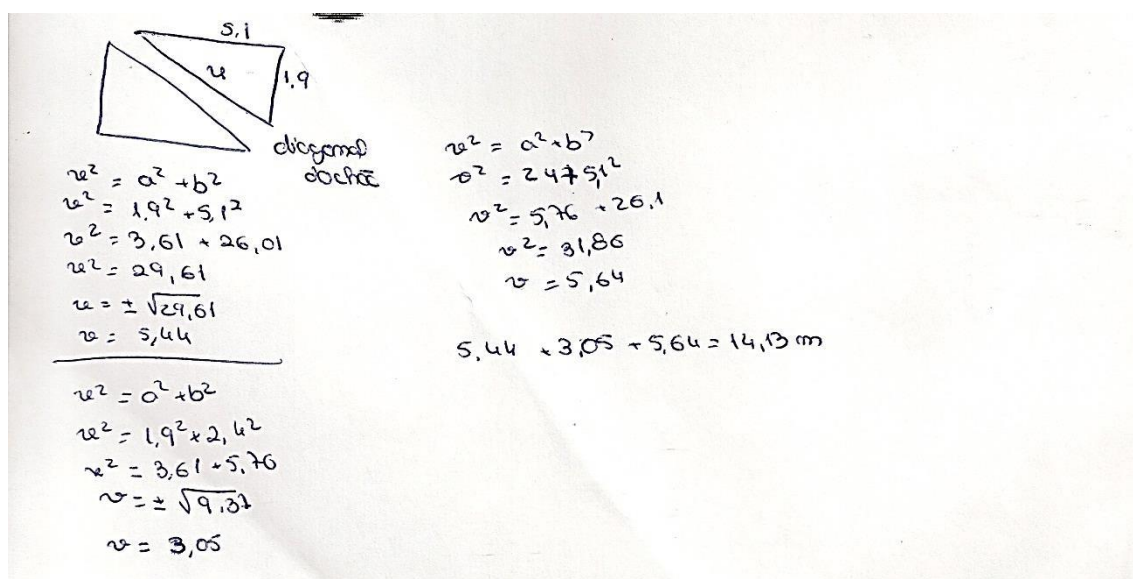 5,1
v
1,9
diagonal
do chão
v² = a² + b²
v² = 1,9² + 5,1²
v² = 3,61 + 26,01
v² = 29,61
v = ± √29,61
v = 5,44
v² = a² + b²
v² = 1,9² + 2,4²
v² = 3,61 + 5,76
v = ± √9,37
v = 3,05
v² = a² + b²
v² = 2,4 + 5,1²
v² = 5,76 + 26,1
v² = 31,86
v = 5,64
5,44 + 3,05 + 5,64 = 14,13 m